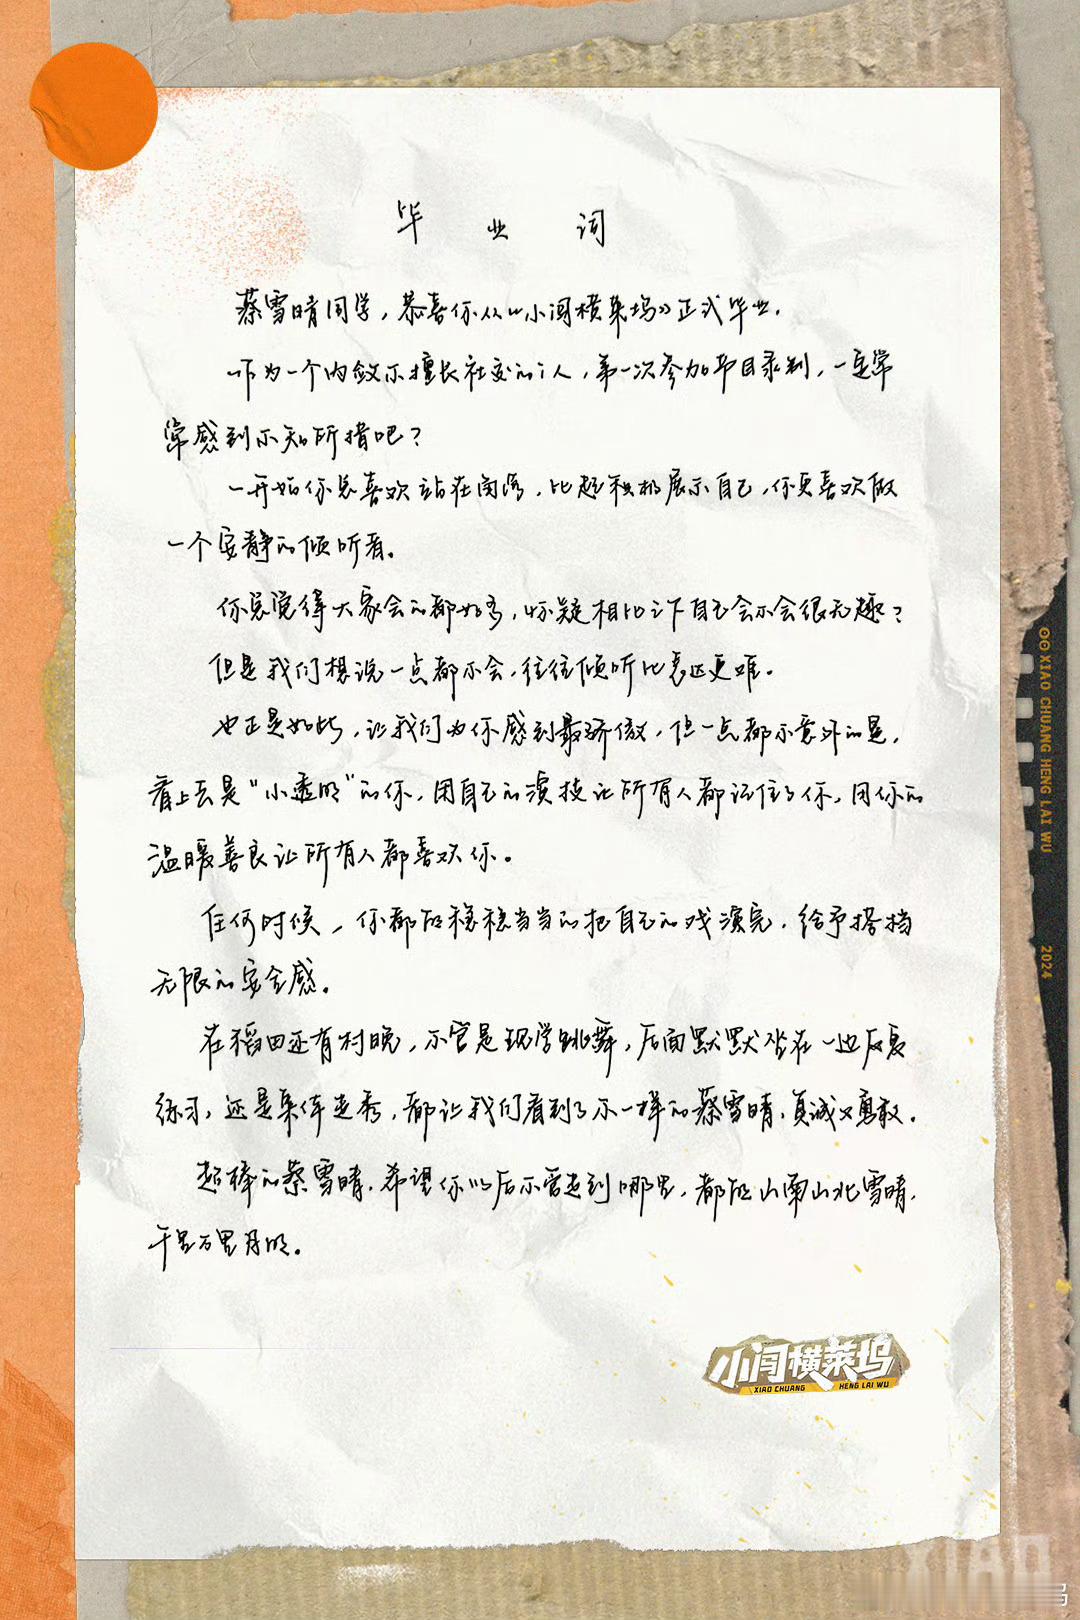 毕业词
蔡雪晴同学，恭喜你从《小闯横莱坞》正式毕业。
作为一个内敛不擅长社交的i人，第一次参加节目录制，一定常
常感到不知所措吧？
一开始你总喜欢站在角落，比起积极展示自己，你更喜欢做
一个安静的倾听者。
你总觉得大家会的都好多，怀疑相比之下自己会不会很无趣？
但是我们想说一点都不会，往往倾听比表达更难。
也正是如此，让我们为你感到最骄傲，但一点都不意外的是，
看上去是“小透明”的你，用自己的演技让所有人都记住了你，用你的
温暖善良让所有人都喜欢你。
任何时候，你都能稳稳当当的把自己的戏演完，给予搭档
无限的安全感。
在稻田还有村晚，不管是现学跳舞，后面默默坐在一边反复
练习，还是集体走秀，都让我们看到了不一样的蔡雪晴，真诚又勇敢。
超棒的蔡雪晴，希望你以后不管走到哪里，都能山南山北雪晴，
千里万里月明。
小闯横莱坞
XIAO CHUANG HENG LAI WU
XIAO CHUANG HENG LAI WU 2024
XIAO